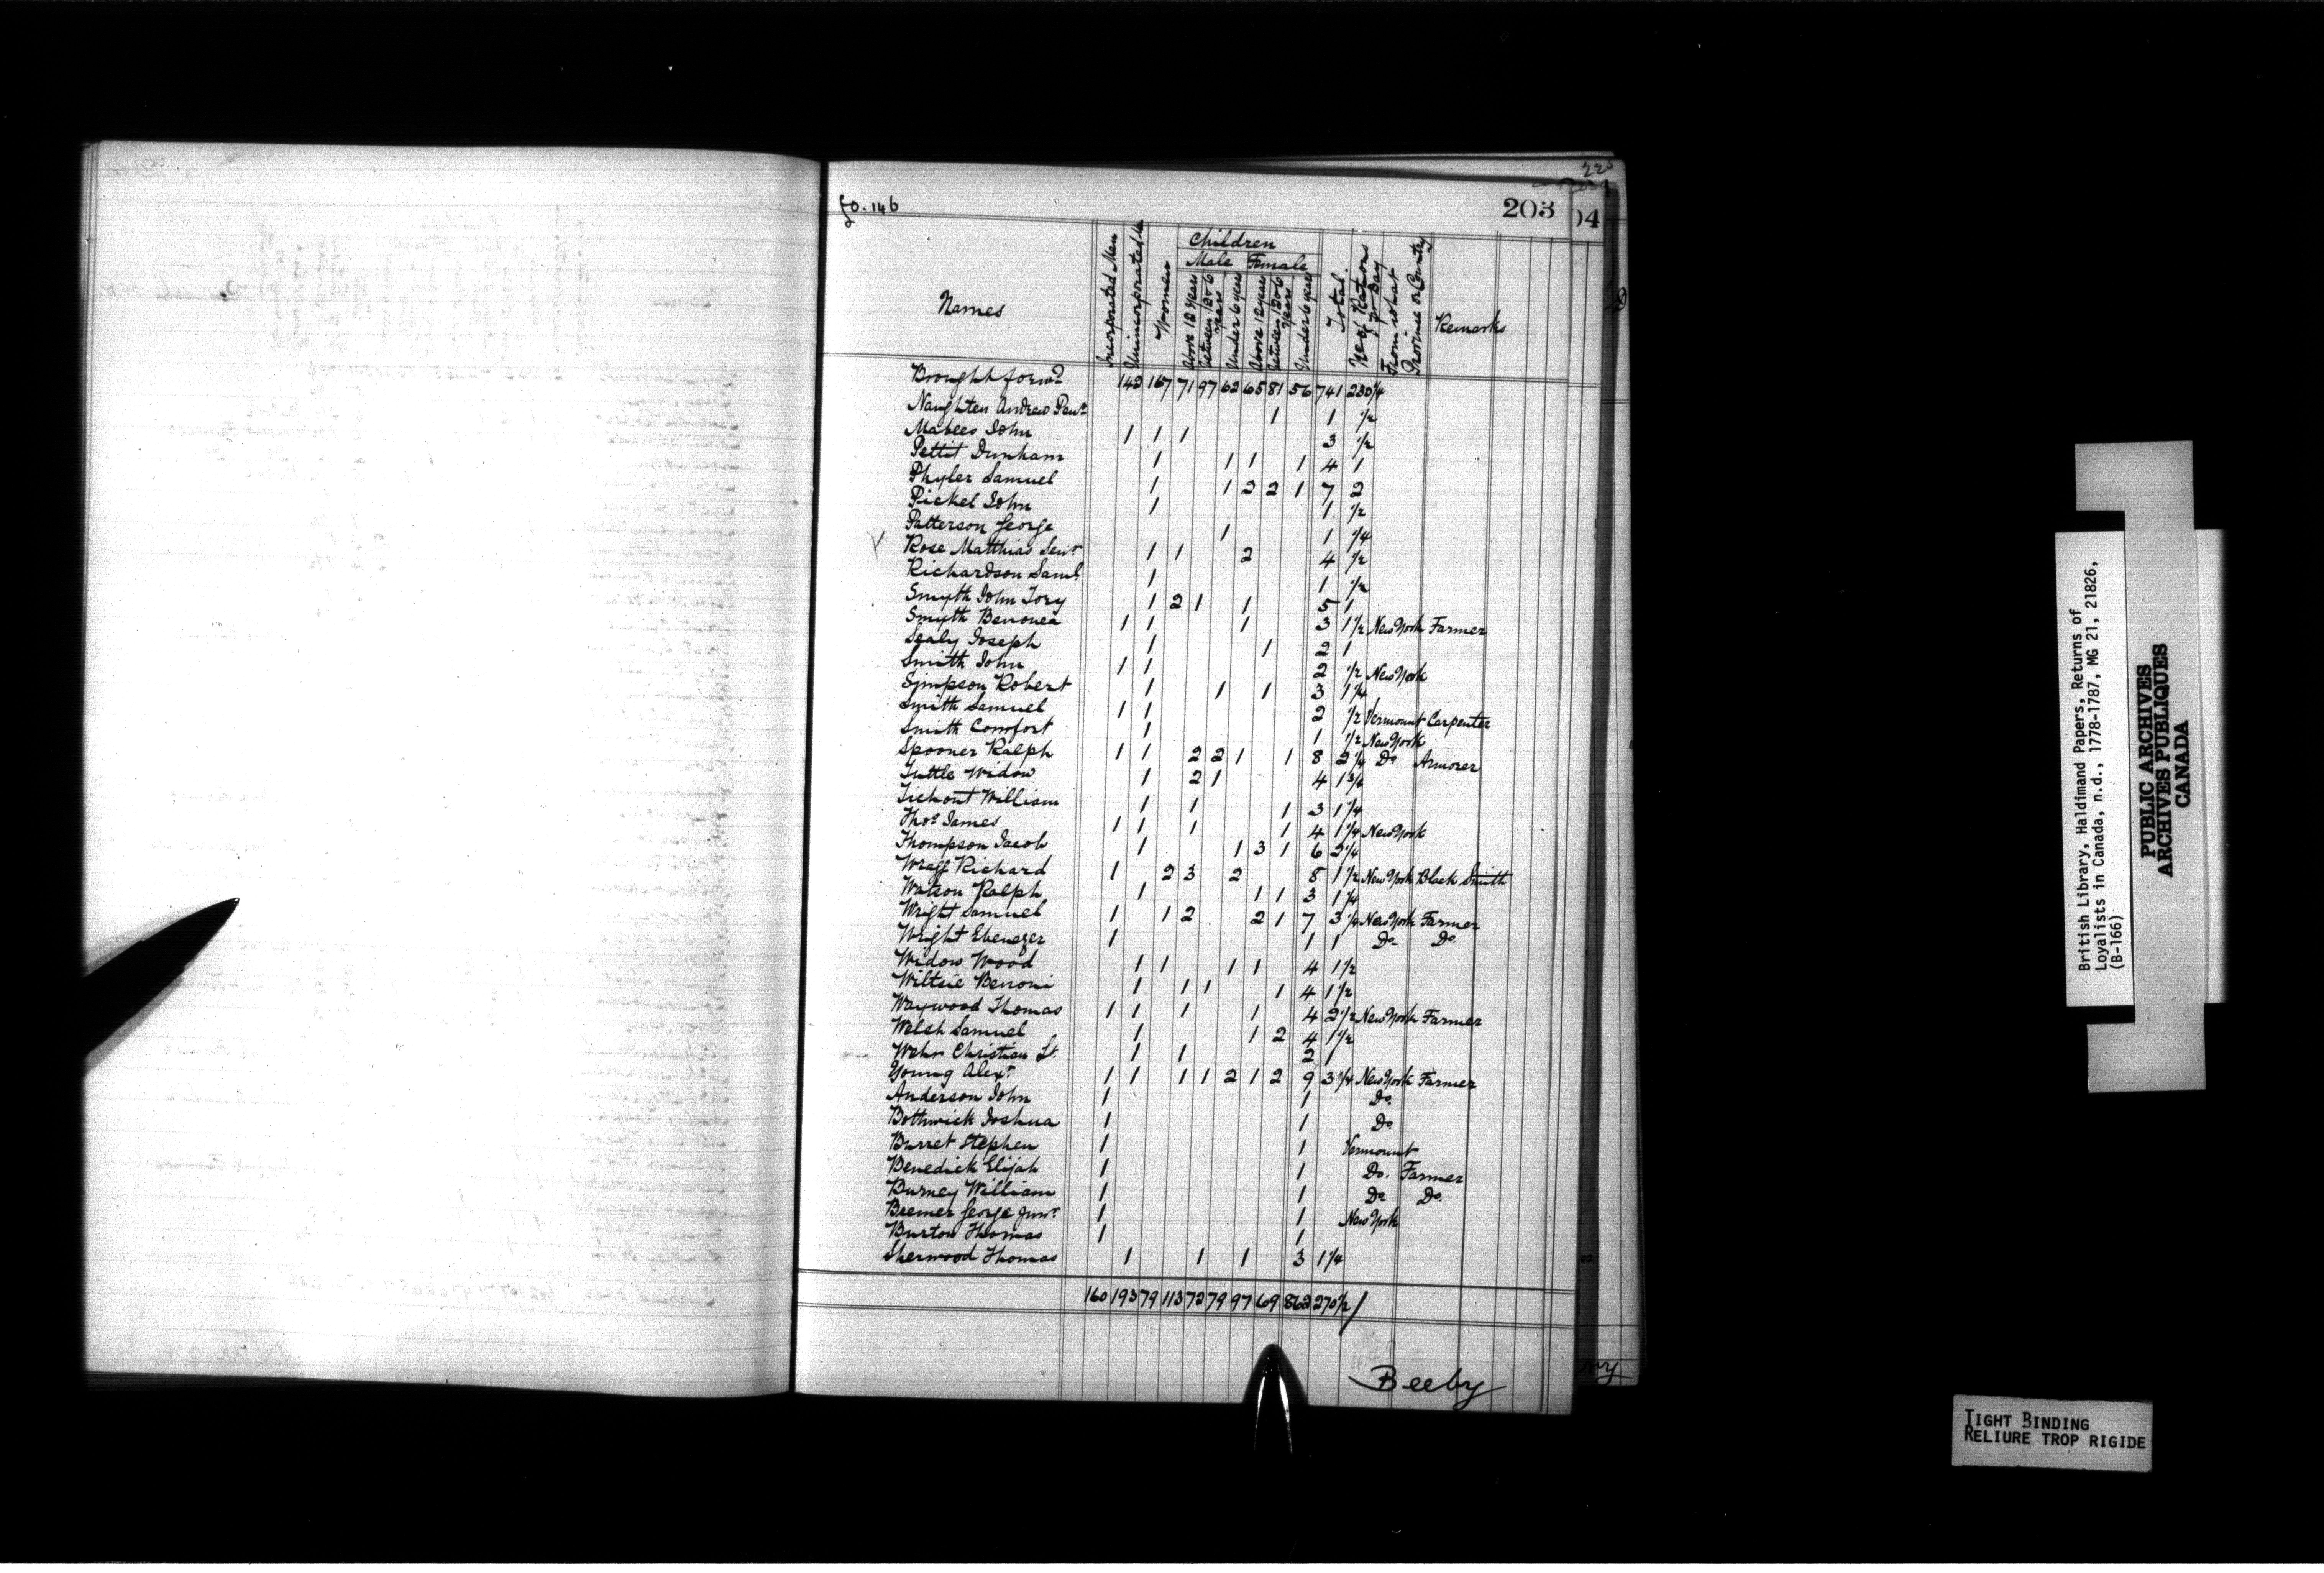 fo. 146
203
Names
Incorporated Men
Unincorporated Men
Women
Children
Male Female
Above 12 years
between 12 & 6 years
Under 6 years
Above 12 years
between 12 & 6 years
Under 6 years
Total.
No of Rations pr Day
From what Province or Country
Remarks
Brought forwd 142 167 71 97 62 65 81 56 741 230 1/4
Naughten Andrew 1 1 1/2
Mabees John 1 1 1 3 1/2
Pettit Dunham 1 1 1 1 4 1
Phyler Samuel 1 1 2 2 1 7 2
Pickel John 1 1 1/2
Patterson George 1 1 1/4
Rose Matthias Senr 1 1 2 4 1/2
Richardson Saml 1 1 1/2
Smyth John Tory 1 2 1 1 5 1
Smyth Benonea 1 1 1 3 1 1/2 New York Farmer
Sealy Joseph 1 1 2 1
Smith John 1 1 2 1/2 New York
Simpson Robert 1 1 1 3 1 1/4
Smith Samuel 1 1 2 1/2 Vermount Carpenter
Smith Comfort 1 1 1/2 New York
Spooner Ralph 1 1 2 2 1 1 8 2 1/4 Do Armorer
Tuttle Widow 1 2 1 4 1 3/4
Tichout William 1 1 1 3 1 1/4
Thos James 1 1 1 1 4 1 1/4 New York
Thompson Jacob 1 1 3 1 6 2 1/4
Wraff Richard 1 2 3 2 8 1 1/2 New York Black Smith
Watson Ralph 1 1 1 3 1 1/4
Wright Samuel 1 1 2 2 1 7 3 1/4 New York Farmer
Wright Ebenezer 1 1 1 Do Do.
Widow Wood 1 1 1 1 4 1 1/2
Wiltsie Benoni 1 1 1 1 4 1 1/2
Waywood Thomas 1 1 1 1 4 2 1/2 New York Farmer
Welsh Samuel 1 1 2 4 1 1/2
Wehr Christian Lt. 1 1 2 1
Young Alexr 1 1 1 1 2 1 2 9 3 1/4 New York Farmer
Anderson John 1 1 Do.
Bothwick Joshua 1 1 Do
Barret Stephen 1 1 Vermount
Benedick Elijah 1 1 Do. Farmer
Burney William 1 1 Do Do.
Bremer George Junr 1 1 New York
Burton Thomas 1 1
Sherwood Thomas 1 1 1 3 1 1/4
160 193 79 113 72 79 97 69 862 270 1/2
Beeby
British Library, Haldimand Papers, Returns of
Loyalists in Canada, n.d., 1778-1787, MG 21, 21826,
(B-166)
PUBLIC ARCHIVES
ARCHIVES PUBLIQUES
CANADA
TIGHT BINDING
RELIURE TROP RIGIDE